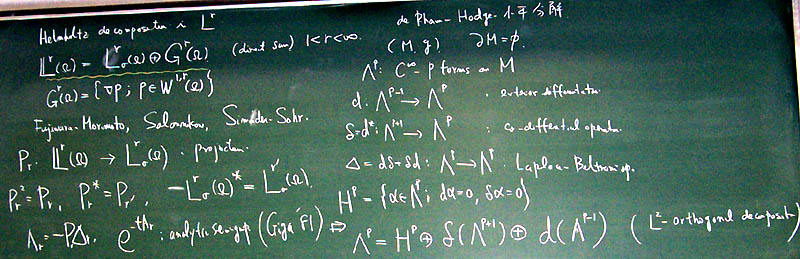 Helmholtz decomposition in L^r
L^r(Ω) = L^r_σ(Ω) ⊕ G^r(Ω) (direct sum) 1<r<∞.
G^r(Ω) = {∇p ; p∈W^{1,r}(Ω)}
Fujiwara-Morimoto, Solonnikov, Simader-Sohr.
P_r : L^r(Ω) → L^r_σ(Ω) · projection
P_r^2 = P_r, P_r^* = P_r', L^r_σ(Ω)^* = L^r'_σ(Ω).
A_r = -P_rΔ, e^{-tA_r} : analytic semigroup (Giga '81) ⇨
de Rham-Hodge-小平分解
(M, g) ∂M = φ.
Λ^p : C^∞-p forms on M
d : Λ^{p-1} → Λ^p : exterior differentiation
δ = d^* : Λ^{p+1} → Λ^p : co-differential operator
Δ = dδ + δd : Λ^p → Λ^p : Laplace-Beltrami op.
H^p = {α∈Λ^p ; dα=0, δα=0}
Λ^p = H^p ⊕ δ(Λ^{p+1}) ⊕ d(Λ^{p-1}) (L^2-orthogonal decomposition)